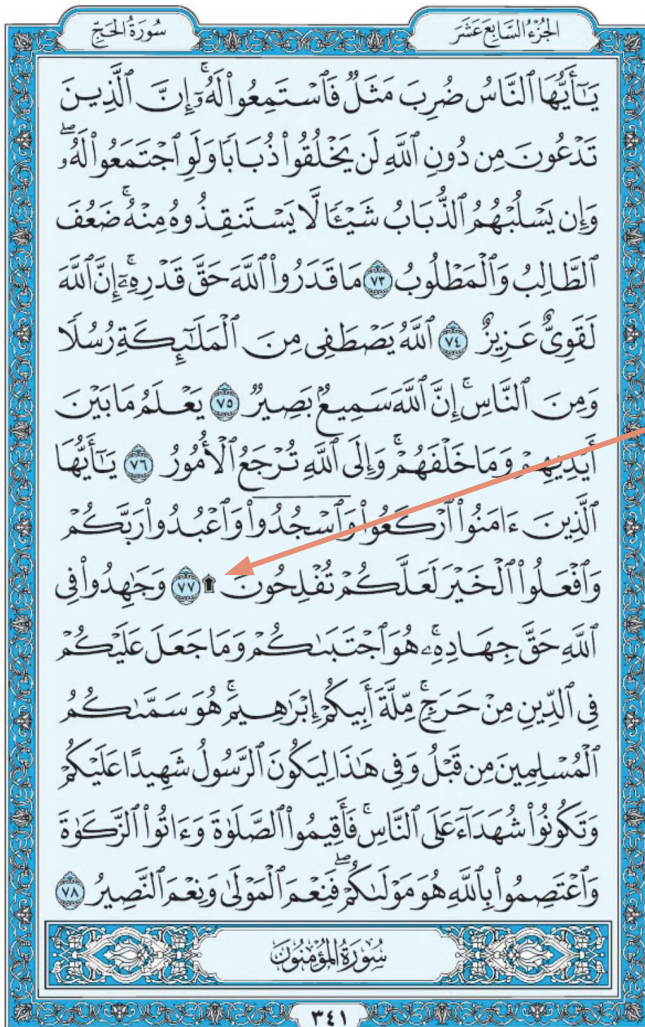 سُورَةُ الحَجِّ
الجُزْءُ السَّابِعَ عَشَرَ
يَـٰٓأَيُّهَا ٱلنَّاسُ ضُرِبَ مَثَلٌ فَٱسْتَمِعُوا۟ لَهُۥٓ ۚ إِنَّ ٱلَّذِينَ
تَدْعُونَ مِن دُونِ ٱللَّهِ لَن يَخْلُقُوا۟ ذُبَابًا وَلَوِ ٱجْتَمَعُوا۟ لَهُۥ ۖ
وَإِن يَسْلُبْهُمُ ٱلذُّبَابُ شَيْـًٔا لَّا يَسْتَنقِذُوهُ مِنْهُ ۚ ضَعُفَ
ٱلطَّالِبُ وَٱلْمَطْلُوبُ ٧٣ مَا قَدَرُوا۟ ٱللَّهَ حَقَّ قَدْرِهِۦٓ ۚ إِنَّ ٱللَّهَ
لَقَوِىٌّ عَزِيزٌ ٧٤ ٱللَّهُ يَصْطَفِى مِنَ ٱلْمَلَـٰٓئِكَةِ رُسُلًا
وَمِنَ ٱلنَّاسِ ۚ إِنَّ ٱللَّهَ سَمِيعٌۢ بَصِيرٌ ٧٥ يَعْلَمُ مَا بَيْنَ
أَيْدِيهِمْ وَمَا خَلْفَهُمْ ۗ وَإِلَى ٱللَّهِ تُرْجَعُ ٱلْأُمُورُ ٧٦ يَـٰٓأَيُّهَا
ٱلَّذِينَ ءَامَنُوا۟ ٱرْكَعُوا۟ وَٱسْجُدُوا۟ وَٱعْبُدُوا۟ رَبَّكُمْ
وَٱفْعَلُوا۟ ٱلْخَيْرَ لَعَلَّكُمْ تُفْلِحُونَ ۩ ٧٧ وَجَـٰهِدُوا۟ فِى
ٱللَّهِ حَقَّ جِهَادِهِۦ ۚ هُوَ ٱجْتَبَىٰكُمْ وَمَا جَعَلَ عَلَيْكُمْ
فِى ٱلدِّينِ مِنْ حَرَجٍ ۚ مِّلَّةَ أَبِيكُمْ إِبْرَٰهِيمَ ۚ هُوَ سَمَّىٰكُمُ
ٱلْمُسْلِمِينَ مِن قَبْلُ وَفِى هَـٰذَا لِيَكُونَ ٱلرَّسُولُ شَهِيدًا عَلَيْكُمْ
وَتَكُونُوا۟ شُهَدَآءَ عَلَى ٱلنَّاسِ ۚ فَأَقِيمُوا۟ ٱلصَّلَوٰةَ وَءَاتُوا۟ ٱلزَّكَوٰةَ
وَٱعْتَصِمُوا۟ بِٱللَّهِ هُوَ مَوْلَىٰكُمْ ۖ فَنِعْمَ ٱلْمَوْلَىٰ وَنِعْمَ ٱلنَّصِيرُ ٧٨
سُورَةُ المُؤْمِنُونَ
٣٤١